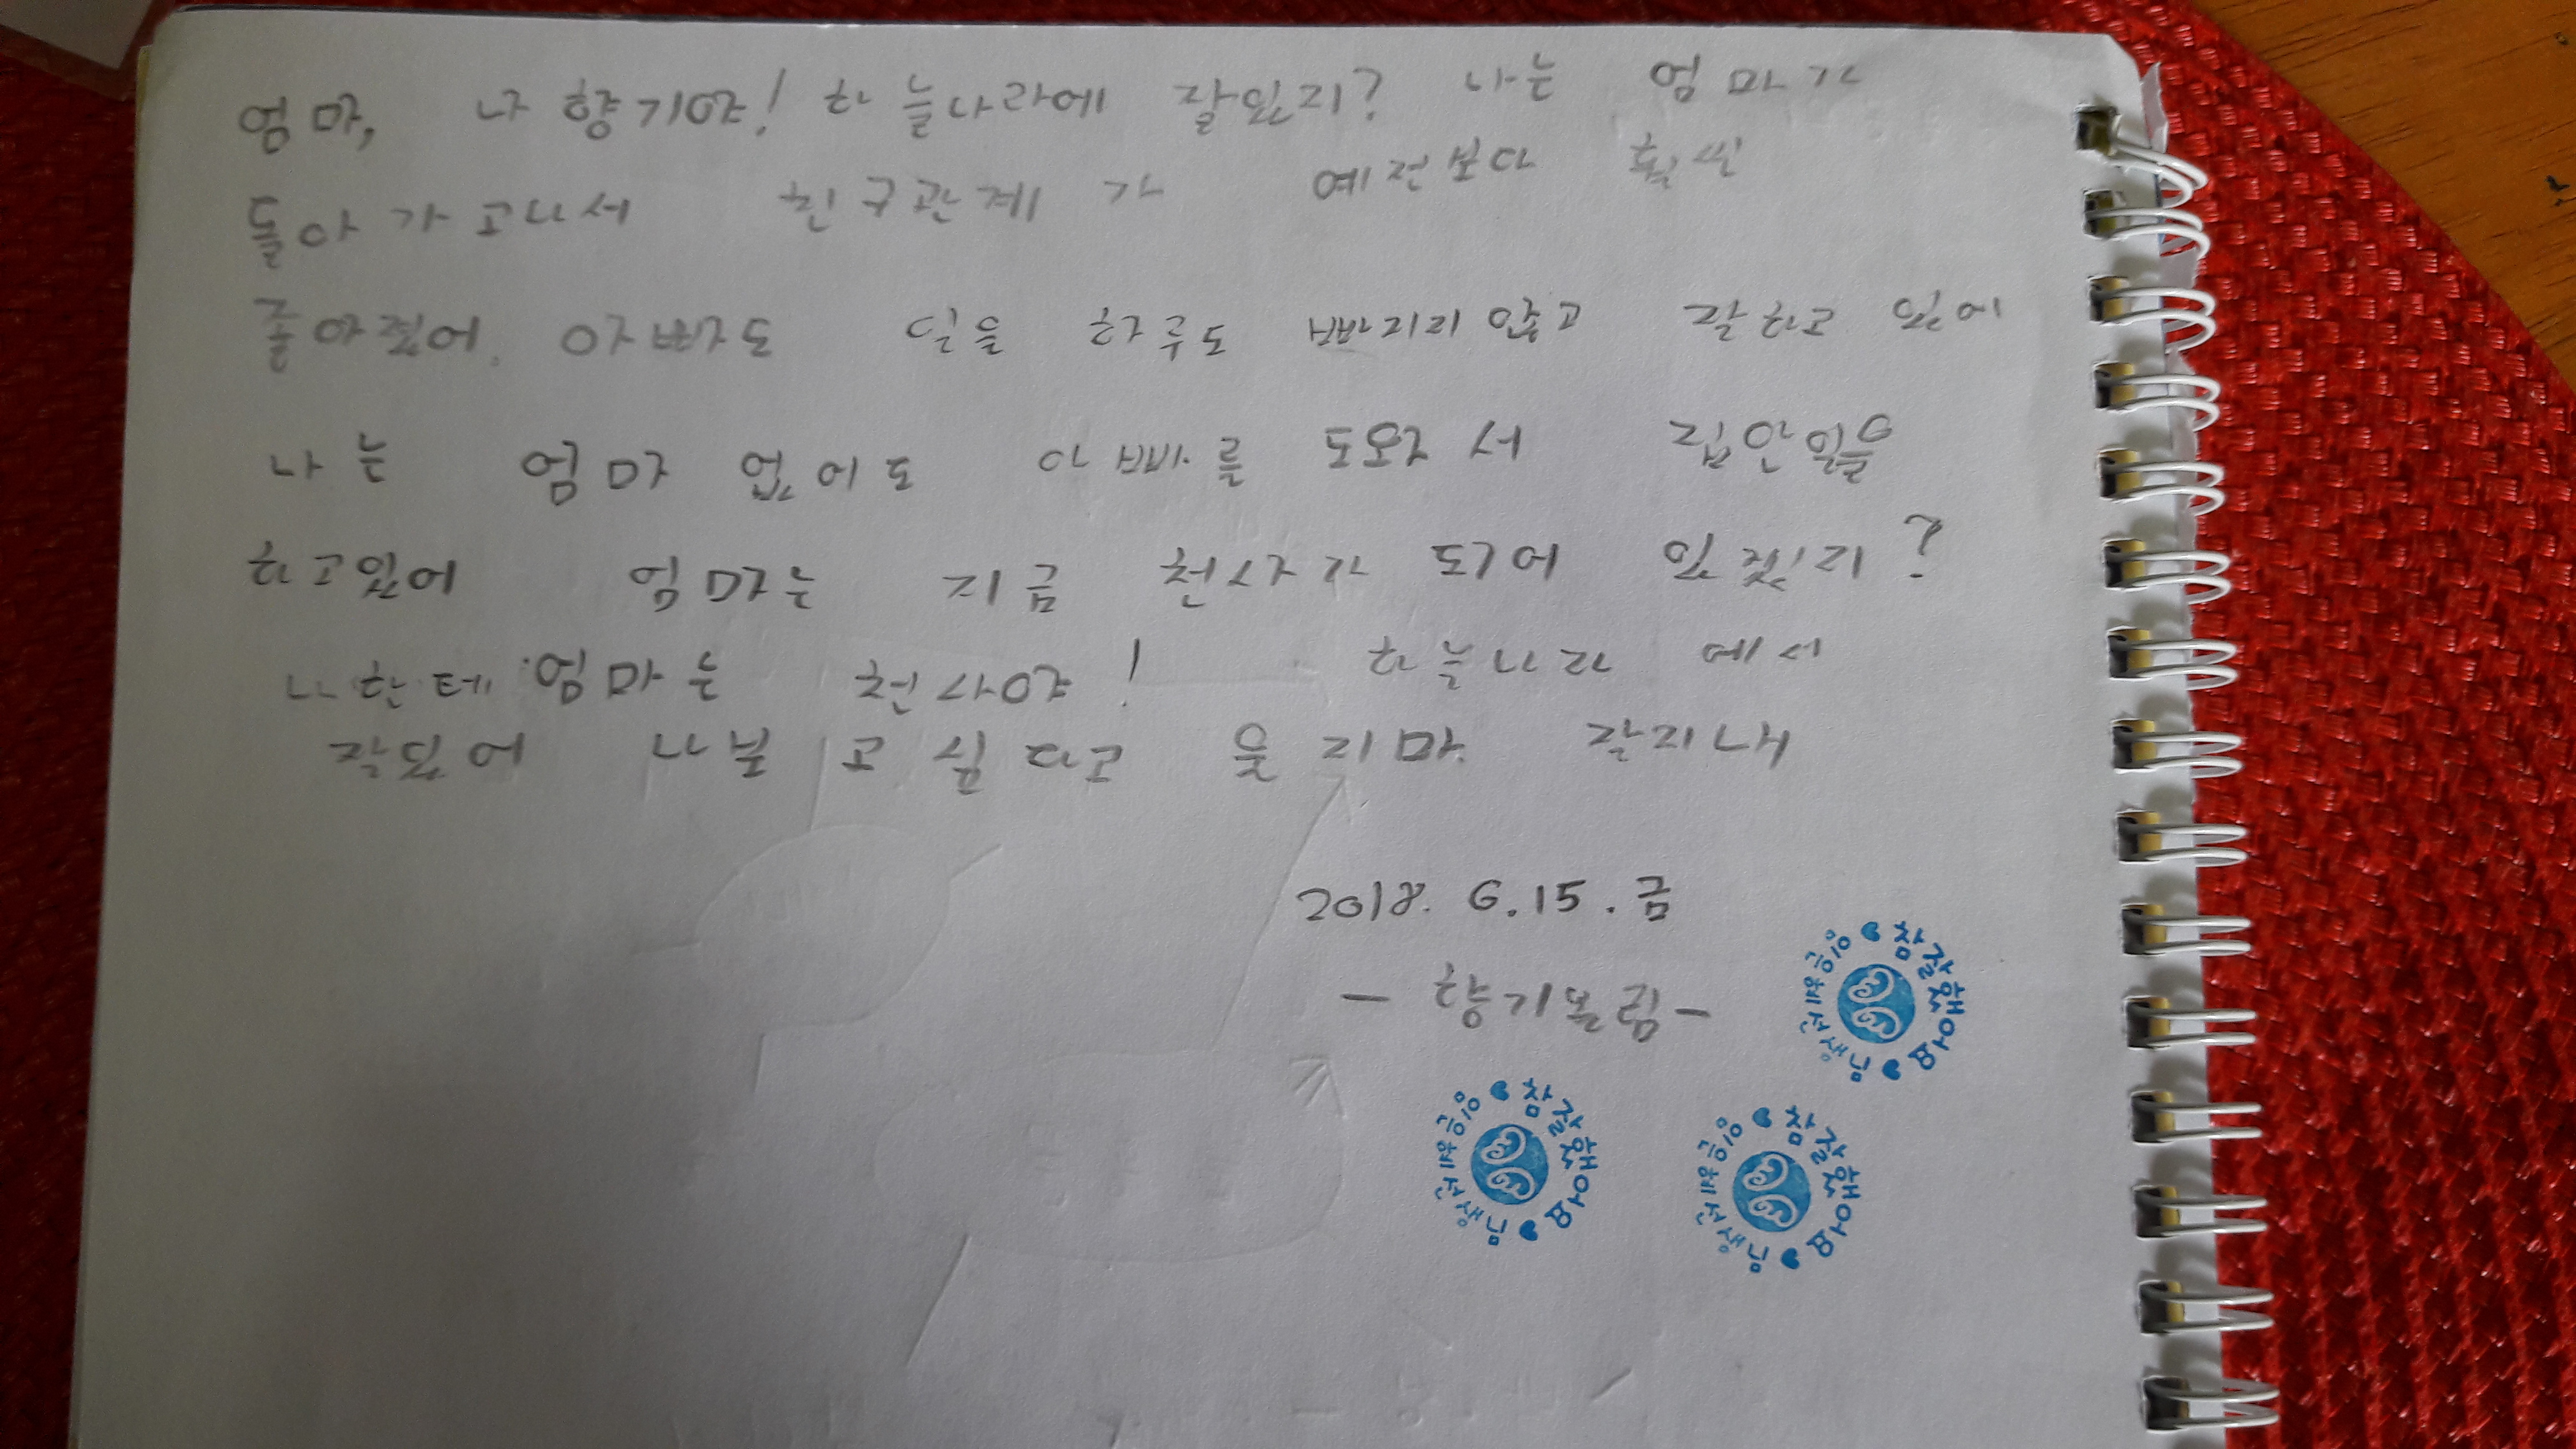 엄마, 나 향기야! 하늘나라에 잘있지? 나는 엄마가
돌아가고나서 친구관계가 예전보다 훨씬
좋아졌어. 아빠도 일을 하루도 빠지지않고 잘하고 있어
나는 엄마 없어도 아빠를 도와서 집안일을
하고있어 엄마는 지금 천사가 되어 있겠지?
나한테 엄마는 천사야! 하늘나라에서
잘있어 나보고싶다고 울지마 잘지내
2018. 6.15.금
- 향기올림 -
참잘했어요
참잘했어요
참잘했어요